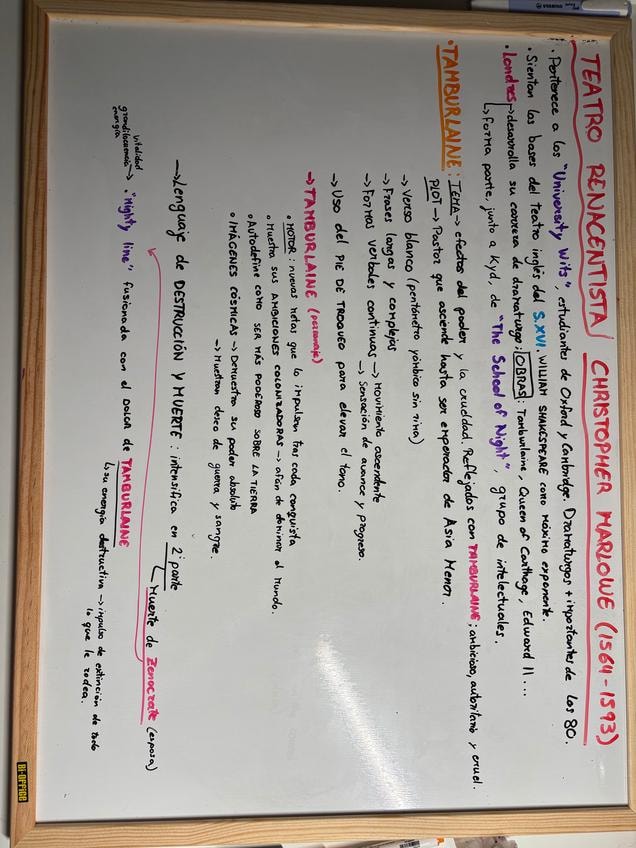 TEATRO RENACENTISTA / CHRISTOPHER MARLOWE (1564-1593)
• Pertenece a los "University Wits", estudiantes de Oxford y Cambridge. Dramaturgos + importantes de los 80.
• Sientan las bases del teatro inglés del S.XVI. WILLIAM SHAKESPEARE como máximo exponente.
• Londres → desarrolla su carrera de dramaturgo: OBRAS: Tamburlaine, Queen of Carthage, Edward II...
↳ Forma parte, junto a Kyd, de "The School of Night", grupo de intelectuales.
• TAMBURLAINE: TEMA → efectos del poder y la crueldad. Reflejados con TAMBURLAINE; ambicioso, autoritario y cruel.
PLOT → Pastor que asciende hasta ser emperador de Asia Menor.
→ Verso blanco (pentámetro yámbico sin rima)
→ Frases largas y complejas
→ Formas verbales continuas → Movimiento ascendente
→ Sensación de avance y progreso.
→ Uso del PIE DE TROQUEO para elevar el tono.
→ TAMBURLAINE (personaje)
• MOTOR: nuevas metas que lo impulsan tras cada conquista
• Muestra sus AMBICIONES COLONIZADORAS → afán de dominar el mundo.
• Autodefine como SER MÁS PODEROSO SOBRE LA TIERRA
• IMÁGENES CÓSMICAS → Demuestra su poder absoluto
→ Muestran deseo de guerra y sangre.
→ Lenguaje de DESTRUCCIÓN Y MUERTE: intensifica en 2ª parte
↳ Muerte de Zenocrate (esposa)
vitalidad
grandilocuencia → • "Mighty line" fusionada con el DOLOR de TAMBURLAINE
energía
↳ su energía destructiva → impulso de extinción de todo
lo que le rodea.
BI-OFFICE